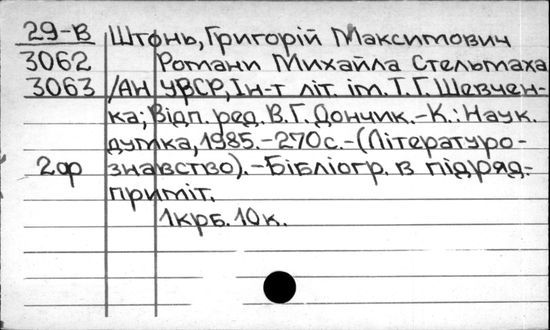 29-В Штонь, Григорій Максимович
3062 Романи Михайла Стельмаха
3063 /АН УРСР, Ін-т літ. ім. Т.Г. Шевчен-
ка; Відп. ред. В.Г. Дончик.-К.: Наук.
думка, 1985.-270с.-(Літературо-
2ор знавство).-Бібліогр. в підряд-
приміт.
1крб. 10к.